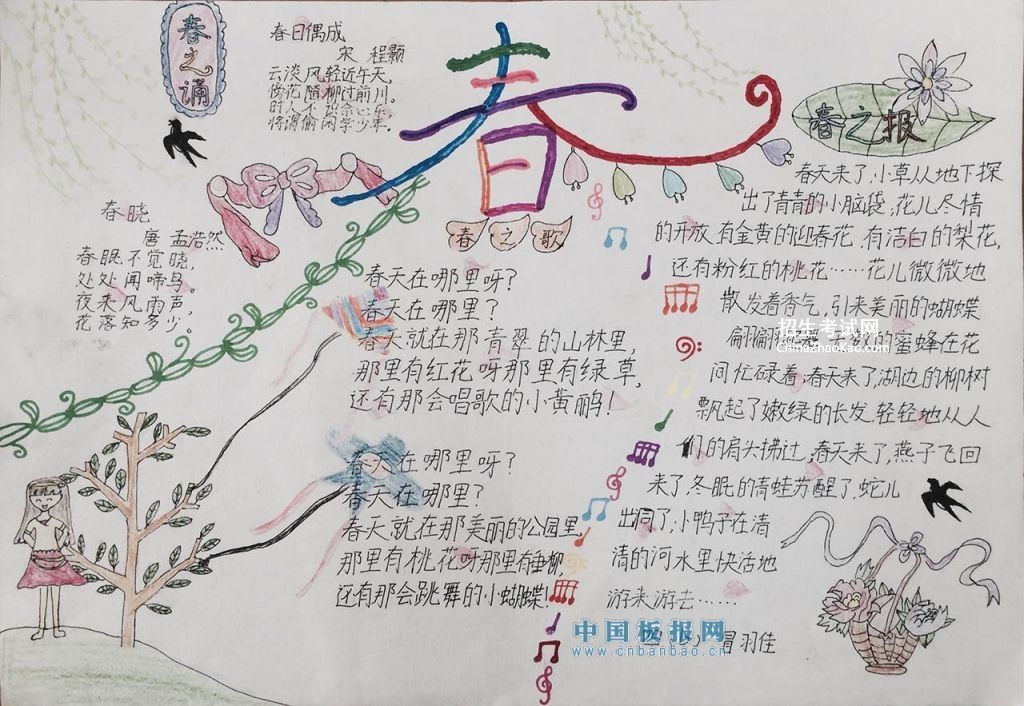 春之诵
春日偶成
宋 程颢
云淡风轻近午天,
傍花随柳过前川。
时人不识余心乐
将谓偷闲学少年。
春
春之报
春晓
唐 孟浩然
春眠不觉晓,
处处闻啼鸟。
夜来风雨声,
花落知多少。
春之歌
春天在哪里呀?
春天在哪里?
春天就在那青翠的山林里,
那里有红花呀那里有绿草,
还有那会唱歌的小黄鹂!
春天在哪里呀?
春天在哪里?
春天就在那美丽的公园里,
那里有桃花呀那里有垂柳,
还有那会跳舞的小蝴蝶!
春天来了,小草从地下探
出了青青的小脑袋,花儿尽情
的开放,有金黄的迎春花,有洁白的梨花,
还有粉红的桃花……花儿微微地
散发着香气,引来美丽的蝴蝶
翩翩 的蜜蜂在花
间忙碌着,春天来了,湖边的柳树
飘起了嫩绿的长发,轻轻地从人
们的肩头拂过,春天来了,燕子飞回
来了,冬眠的青蛙苏醒了,蛇儿
出洞了,小鸭子在清
清的河水里快活地
游来游去……
冒羽佳
招生考试网
Chinazhaokao.com
中国板报网
www.cnbanbao.cn